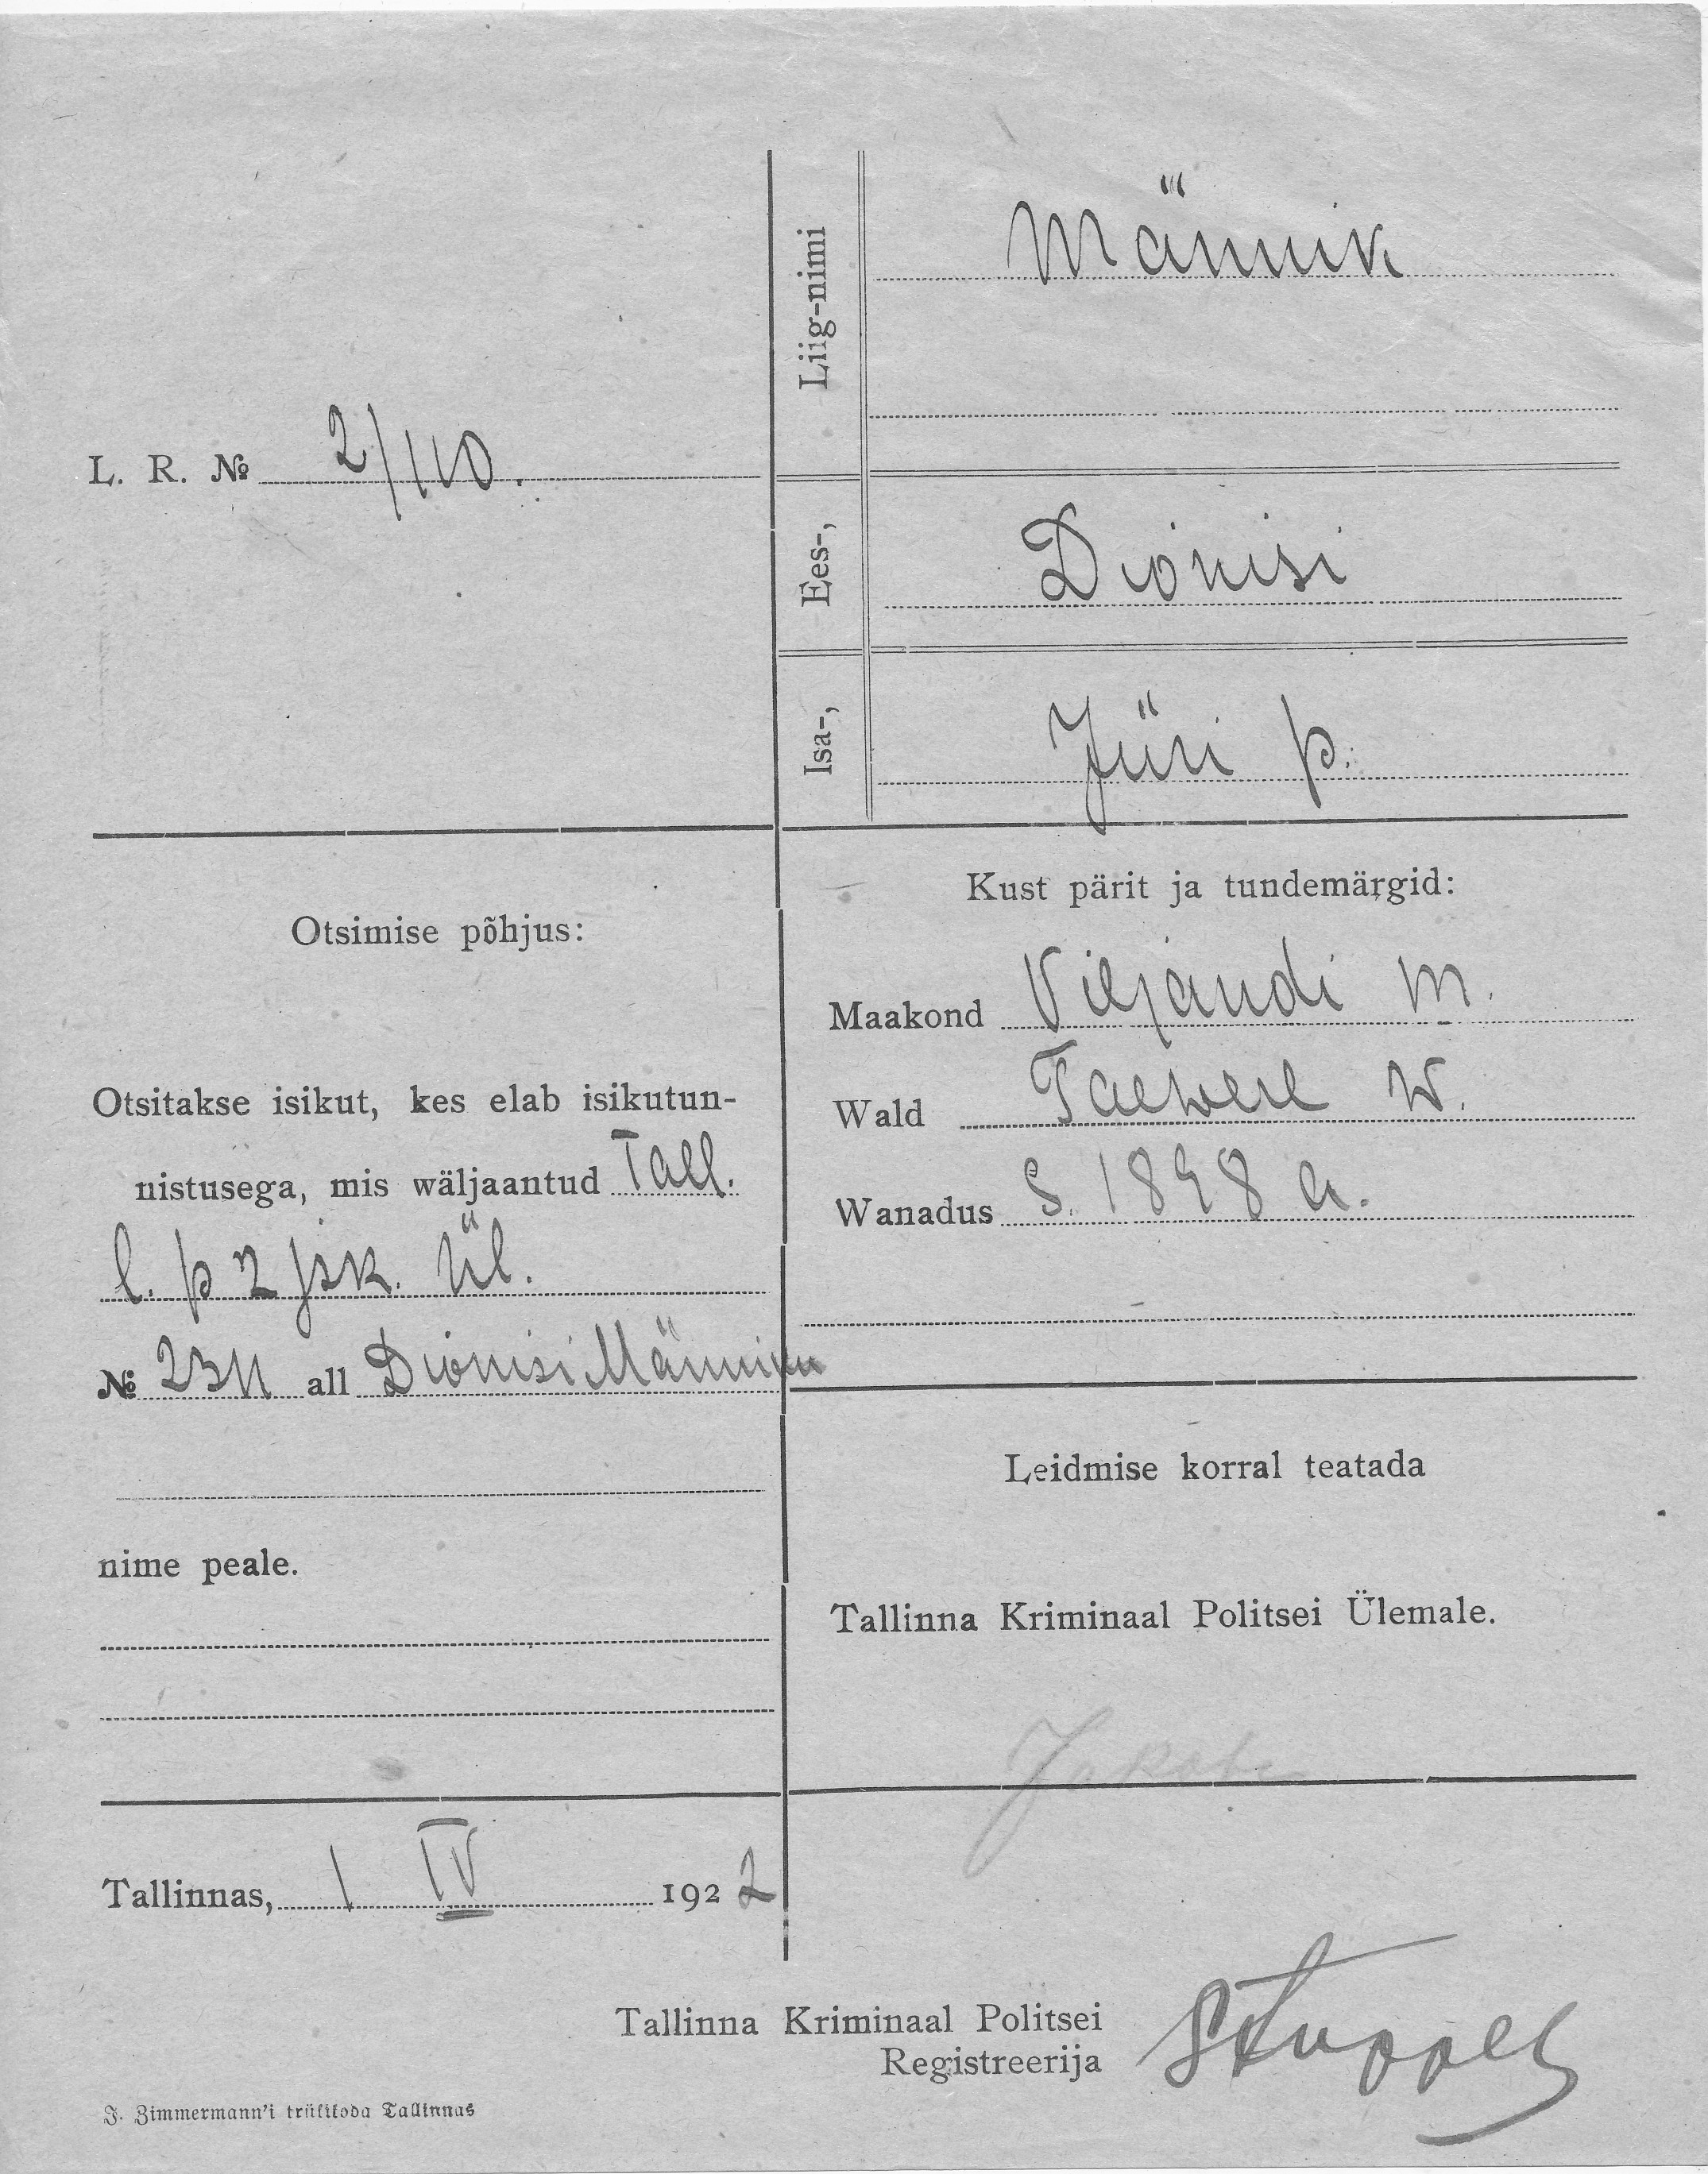 L. R. № 2/110.
Liig-nimi Männik
Ees-, Dionisi
Isa-, Jüri p.
Otsimise põhjus:
Otsitakse isikut, kes elab isikutun-
nistusega, mis wäljaantud Tall.
l. p 2 jsk. Ül.
№ 2311 all Dionisi Männiku
nime peale.
Tallinnas, 1 IV 1922
Kust pärit ja tundemärgid:
Maakond Viljandi m.
Wald Taewere w.
Wanadus s. 1898 a.
Leidmise korral teatada
Tallinna Kriminaal Politsei Ülemale.
Tallinna Kriminaal Politsei
Registreerija
J. Zimmermann'i trükikoda Tallinnas